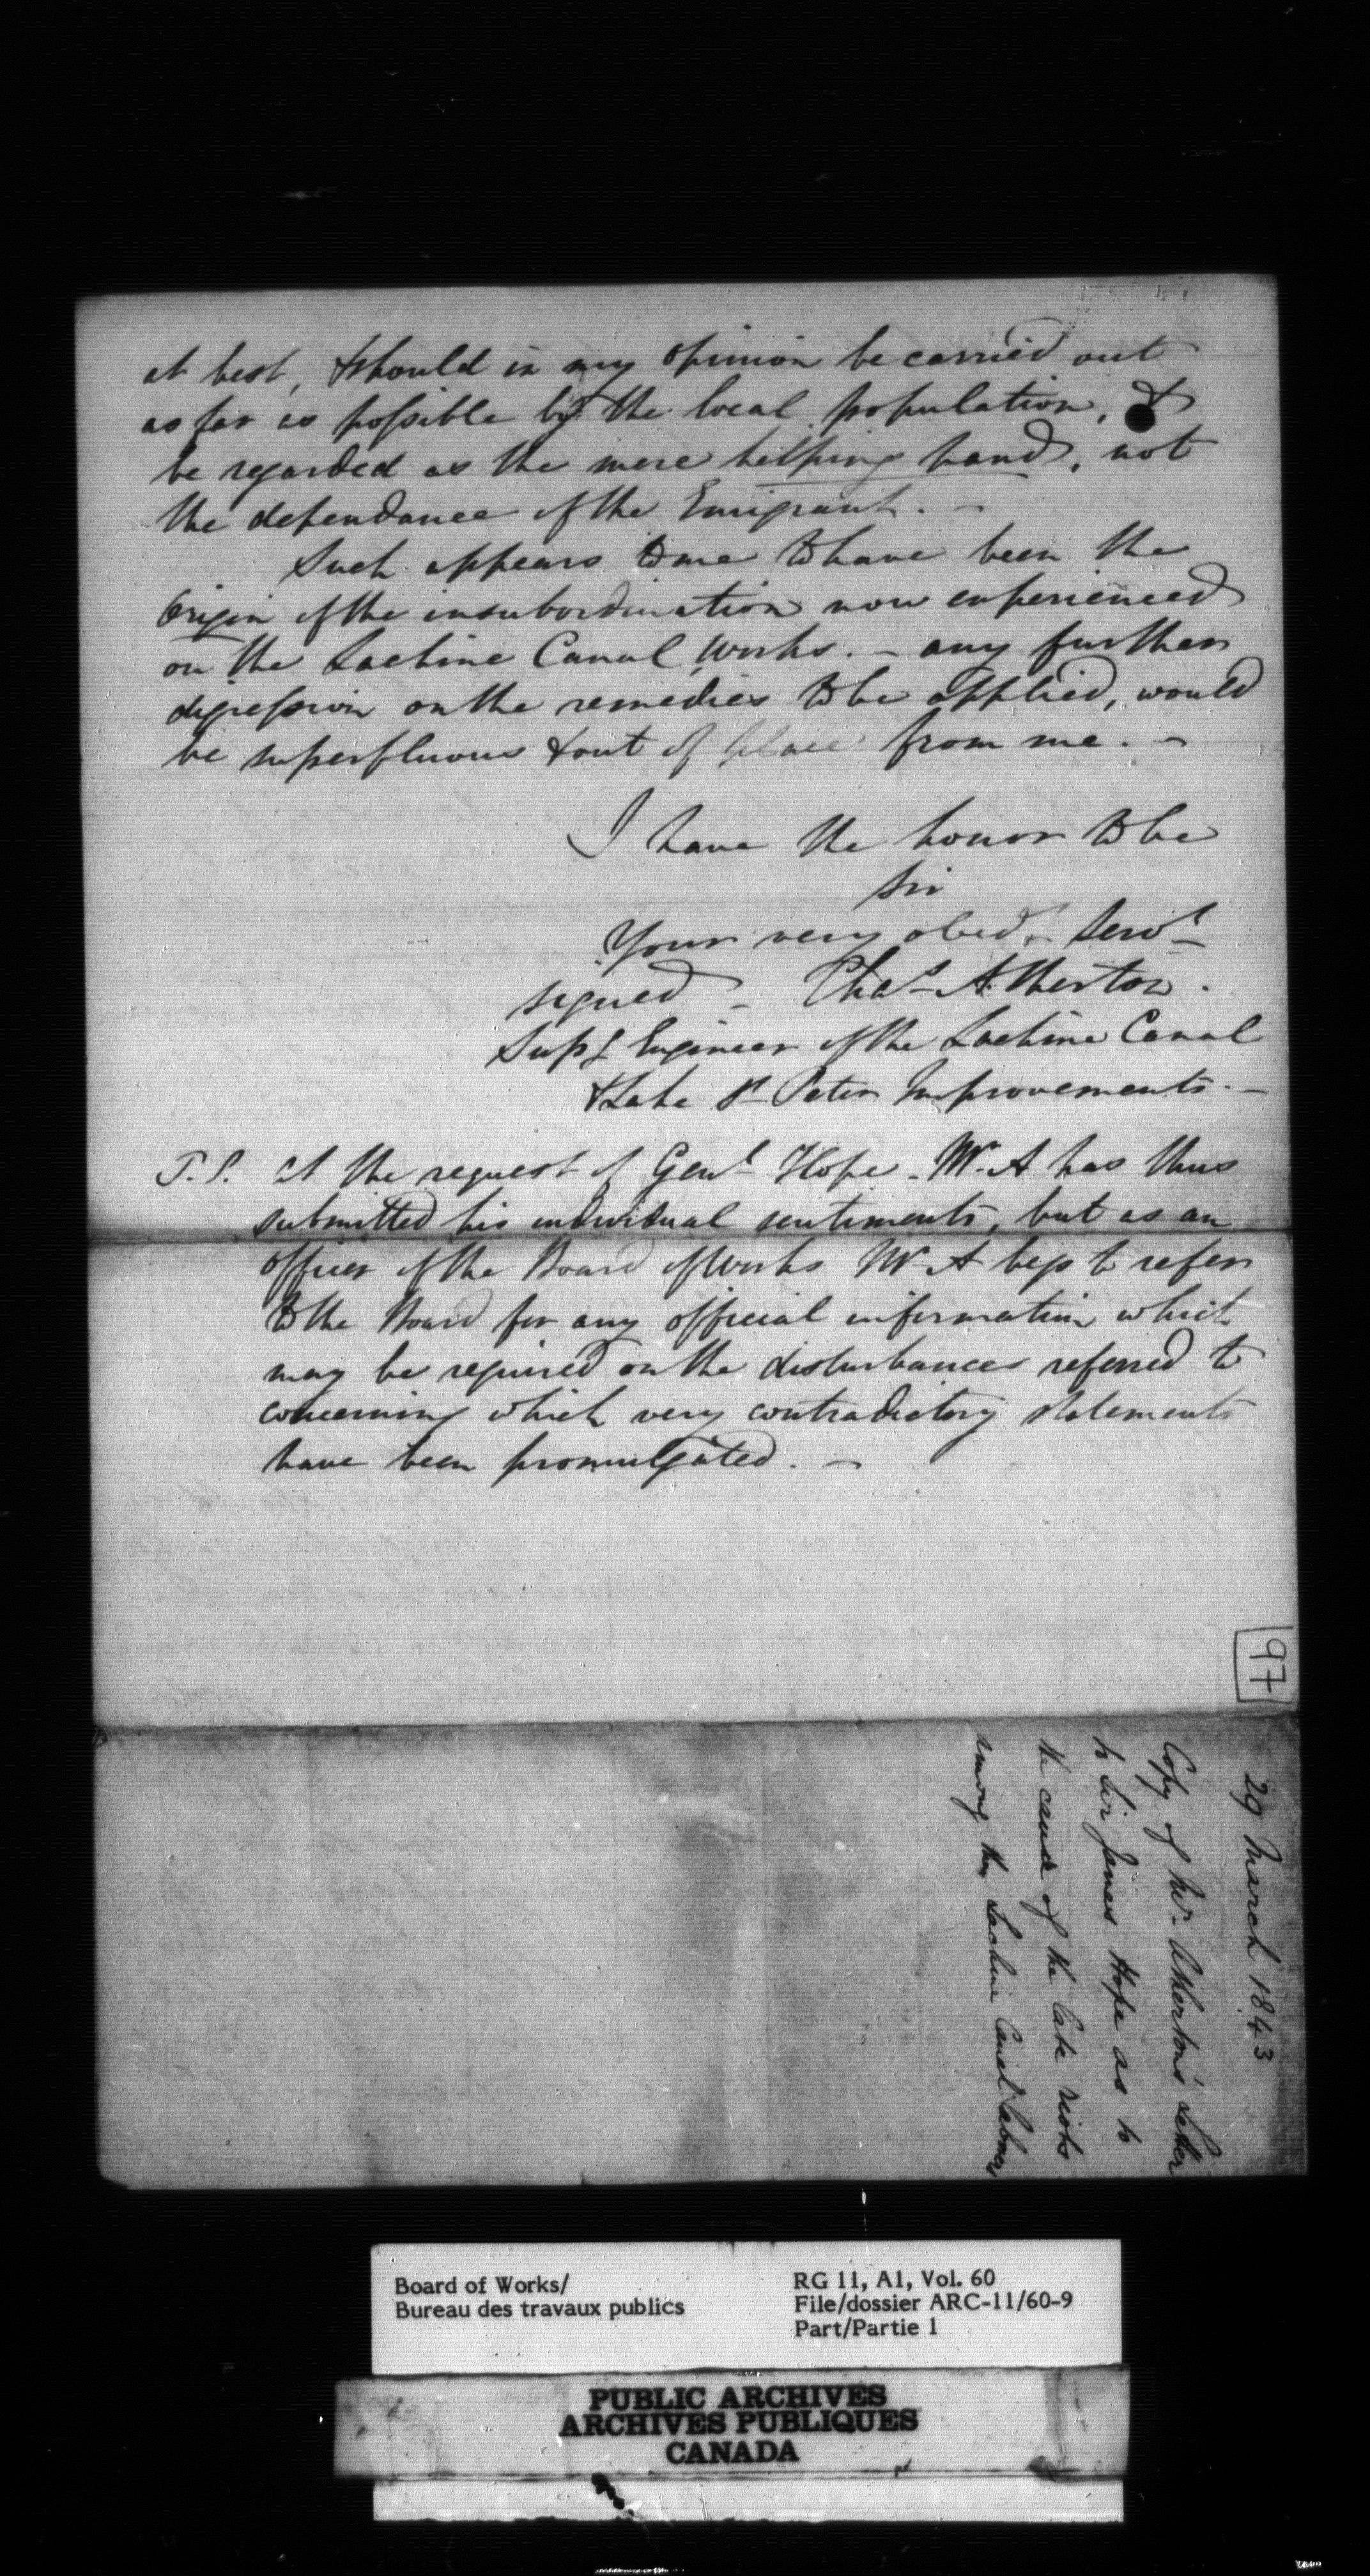 at best, & should in my opinion be carried out
as far as possible by the local population, &
be regarded as the mere helping hand, not
the dependance of the Emigrant. -
Such appears to me to have been the
Origin of the insubordination now experienced
on the Lachine Canal Works. - any further
digression on the remedies to be applied, would
be superfluous & out of place from me. -
I have the honor to be
Sir
Your very obedt. Servt
signed - Chas Atherton.
Supt Engineer of the Lachine Canal
& Lake St Peter Improvements. -
P.S. At the request of Genl Hope - Mr A has thus
submitted his individual sentiments, but as an
officer of the Board of Works Mr A begs to refer
to the Board for any official information which
may be required on the disturbances referred to
concerning which very contradictory statements
have been promulgated. -
97
29 March 1843
Copy of Mr. Atherton's Letter
to Sir James Hope as to
the cause of the late riots
among the Lachine Canal labourers
Board of Works/
Bureau des travaux publics
RG 11, A1, Vol. 60
File/dossier ARC-11/60-9
Part/Partie 1
PUBLIC ARCHIVES
ARCHIVES PUBLIQUES
CANADA